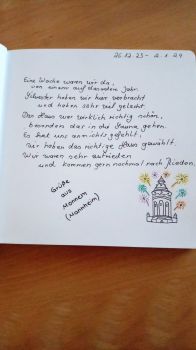 26.12.23 - 2.1.24
Eine Woche waren wir da,
von einem auf das andere Jahr.
Silvester haben wir hier verbracht
und haben sehr viel gelacht.
Das Haus war wirklich richtig schön,
besonders dar in die Sauna gehen.
Es hat uns an nichts gefehlt,
wir haben das richtige Haus gewählt.
Wir waren sehr zufrieden
und kommen gern nochmal nach Rieden.
Grüße
aus
Monnem
(Mannheim)